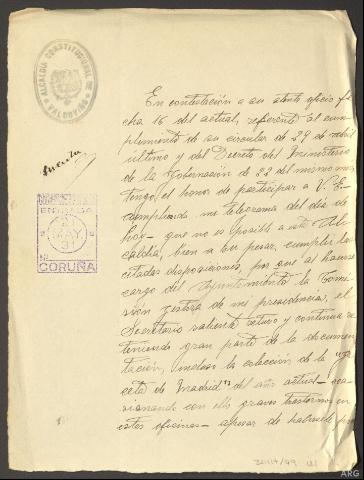 ALCALDIA CONSTITUCIONAL DE VALDOVIÑO
ENTRADA
MAY.
31
CORUÑA
En contestación a su atento oficio fe-
cha 16 del actual, referente al cum-
plimiento de su circular de 29 de abril
último y del Decreto del Ministerio
de la Gobernacion de 22 del mismo mes,
tengo el honor de participar a V. E.
cumpliendo mi telegrama del dia de
hoy - que no es posible a esta Al-
caldía, bien a su pesar, cumplir las
citadas disposiciones, por que al hacerse
cargo del Ayuntamiento la Comi-
sión gestora de mi presidencia, el
Secretario saliente retuvo y continua re-
teniendo gran parte de la documen-
tación, incluso la colección de la "Ga-
ceta de Madrid" del año actual - oca-
sionando con ello graves trastornos en
estas oficinas - apesar de habersele
ARG